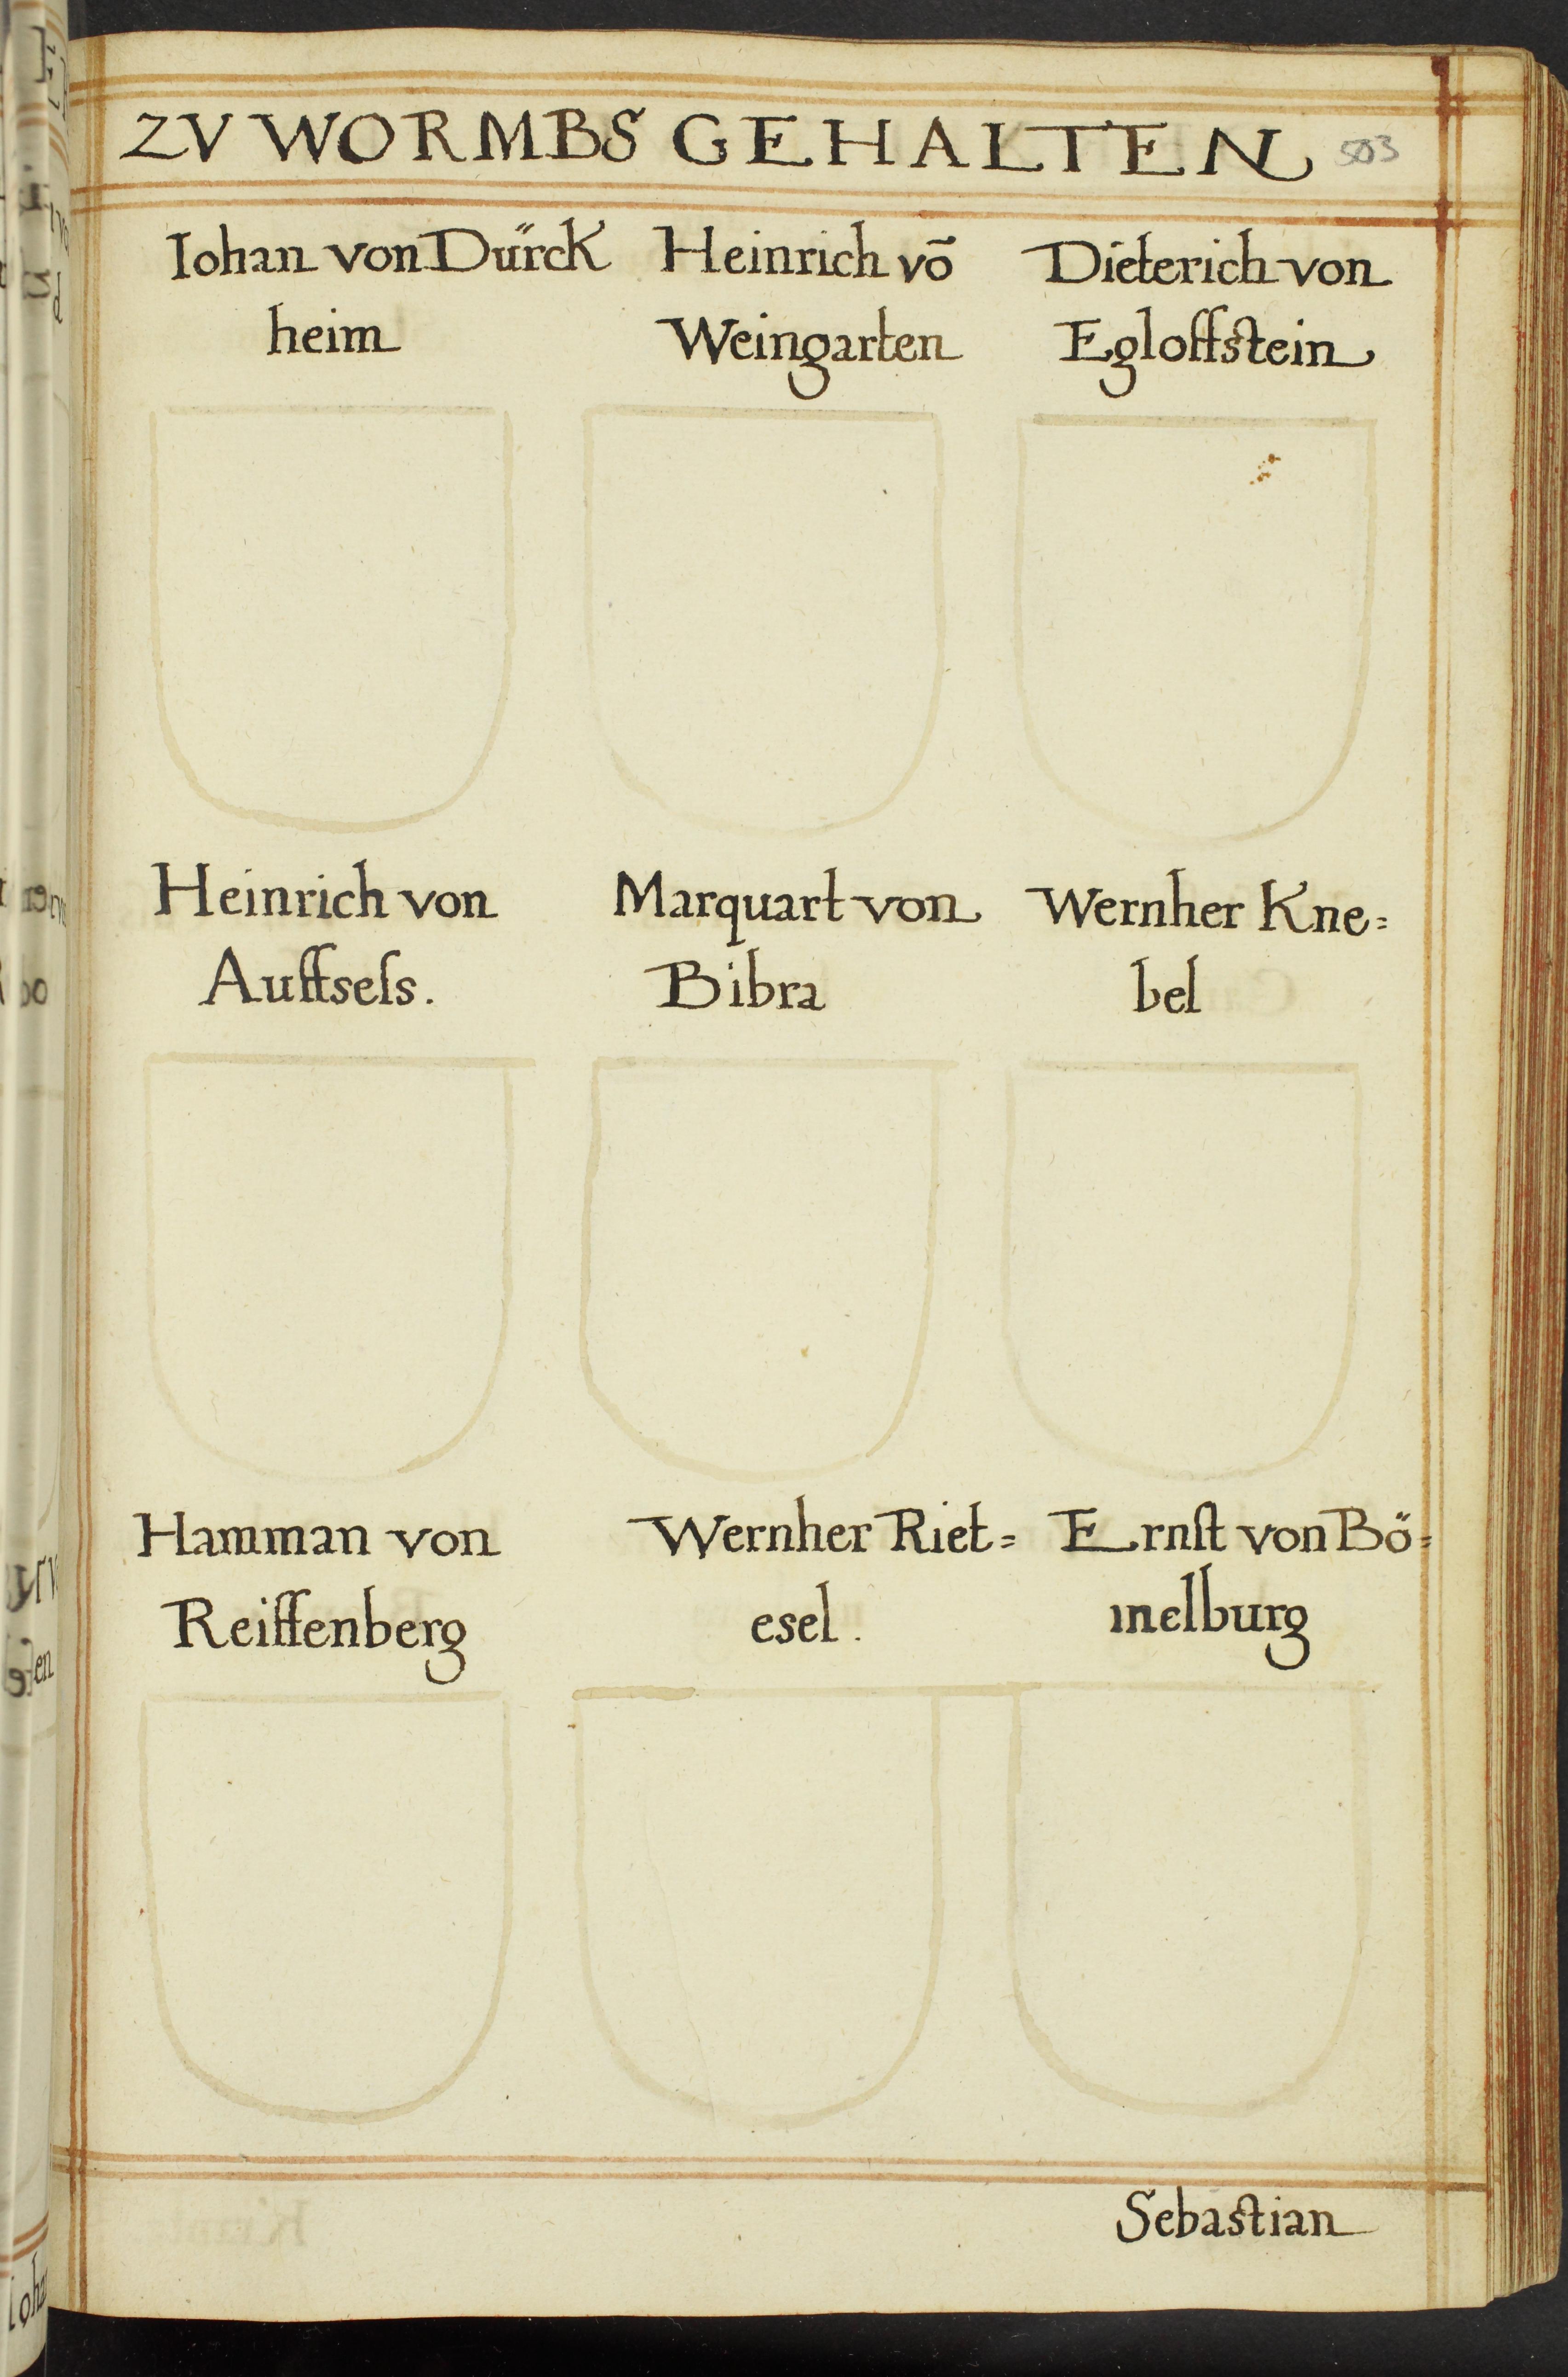 ZV WORMBS GEHALTEN 503
Iohan von Dürck
heim
Heinrich võ
Weingarten
Dieterich von
Egloffstein
Heinrich von
Auffsels.
Marquart von
Bibra
Wernher Kne=
bel
Hamman von
Reiffenberg
Wernher Riet=
esel.
Ernst von Bö=
melburg
Sebastian